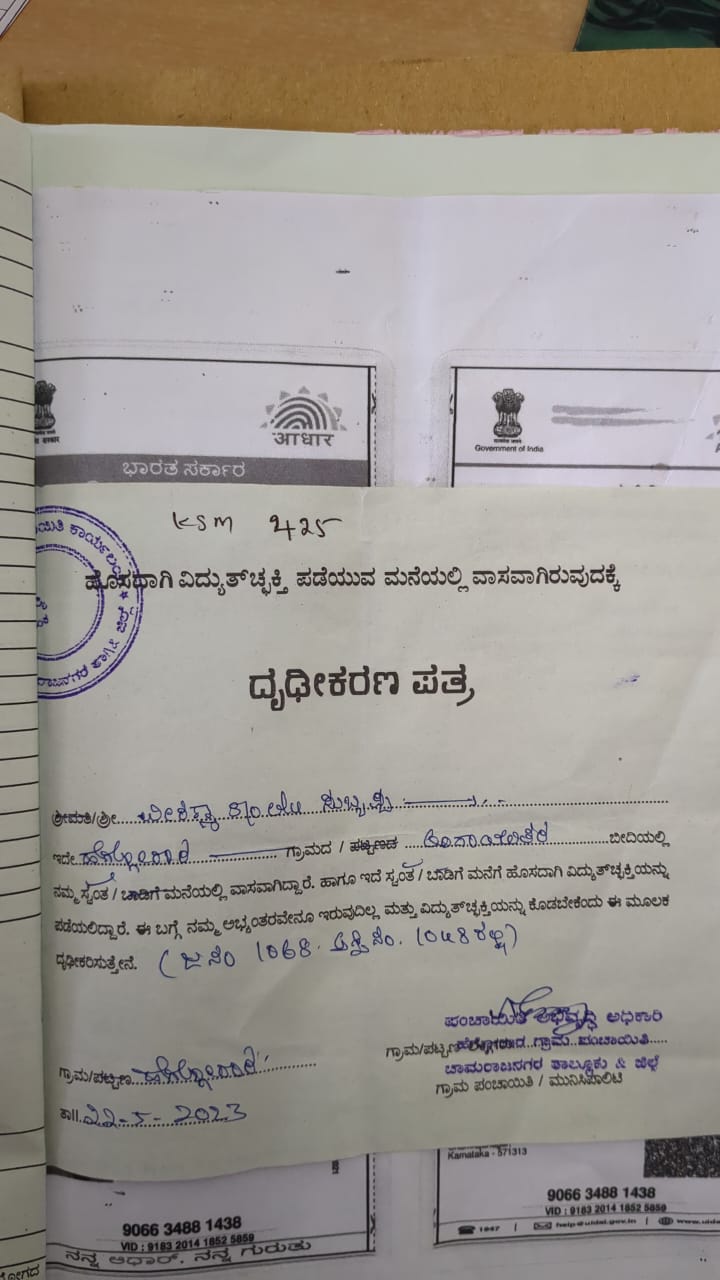 आधार
ಭಾರತ ಸರ್ಕಾರ
Government of India
KSM 425
ಹೊಸದಾಗಿ ವಿದ್ಯುತ್‌ಚ್ಛಕ್ತಿ ಪಡೆಯುವ ಮನೆಯಲ್ಲಿ ವಾಸವಾಗಿರುವುದಕ್ಕೆ
ದೃಢೀಕರಣ ಪತ್ರ
ಶ್ರೀಮತಿ/ಶ್ರೀ
ಇದೇ ಗ್ರಾಮದ / ಪಟ್ಟಣದ ಬೀದಿಯಲ್ಲಿ
ನಮ್ಮ ಸ್ವಂತ / ಬಾಡಿಗೆ ಮನೆಯಲ್ಲಿ ವಾಸವಾಗಿದ್ದಾರೆ. ಹಾಗೂ ಇದೆ ಸ್ವಂತ / ಬಾಡಿಗೆ ಮನೆಗೆ ಹೊಸದಾಗಿ ವಿದ್ಯುತ್‌ಚ್ಛಕ್ತಿಯನ್ನು
ಪಡೆಯಲಿದ್ದಾರೆ. ಈ ಬಗ್ಗೆ ನಮ್ಮ ಅಭ್ಯಂತರವೇನೂ ಇರುವುದಿಲ್ಲ ಮತ್ತು ವಿದ್ಯುತ್‌ಚ್ಛಕ್ತಿಯನ್ನು ಕೊಡಬೇಕೆಂದು ಈ ಮೂಲಕ
ದೃಢೀಕರಿಸುತ್ತೇನೆ. (ಜ ನಂ 1068.
ಪಂಚಾಯಿತಿ ಅಭಿವೃದ್ಧಿ ಅಧಿಕಾರಿ
ಗ್ರಾಮ/ಪಟ್ಟಣ ಗ್ರಾಮ ಪಂಚಾಯಿತಿ
ಚಾಮರಾಜನಗರ ತಾಲ್ಲೂಕು & ಜಿಲ್ಲೆ
ಗ್ರಾಮ ಪಂಚಾಯಿತಿ / ಮುನಿಸಿಪಾಲಿಟಿ
ಗ್ರಾಮ/ಪಟ್ಟಣ
ತಾ|| 22-5-2023
Karnataka - 571313
9066 3488 1438
VID : 9183 2014 1852 5859
1947 | help@uidai.gov.in |
9066 3488 1438
VID : 9183 2014 1852 5859
ನನ್ನ ಆಧಾರ್, ನನ್ನ ಗುರುತು